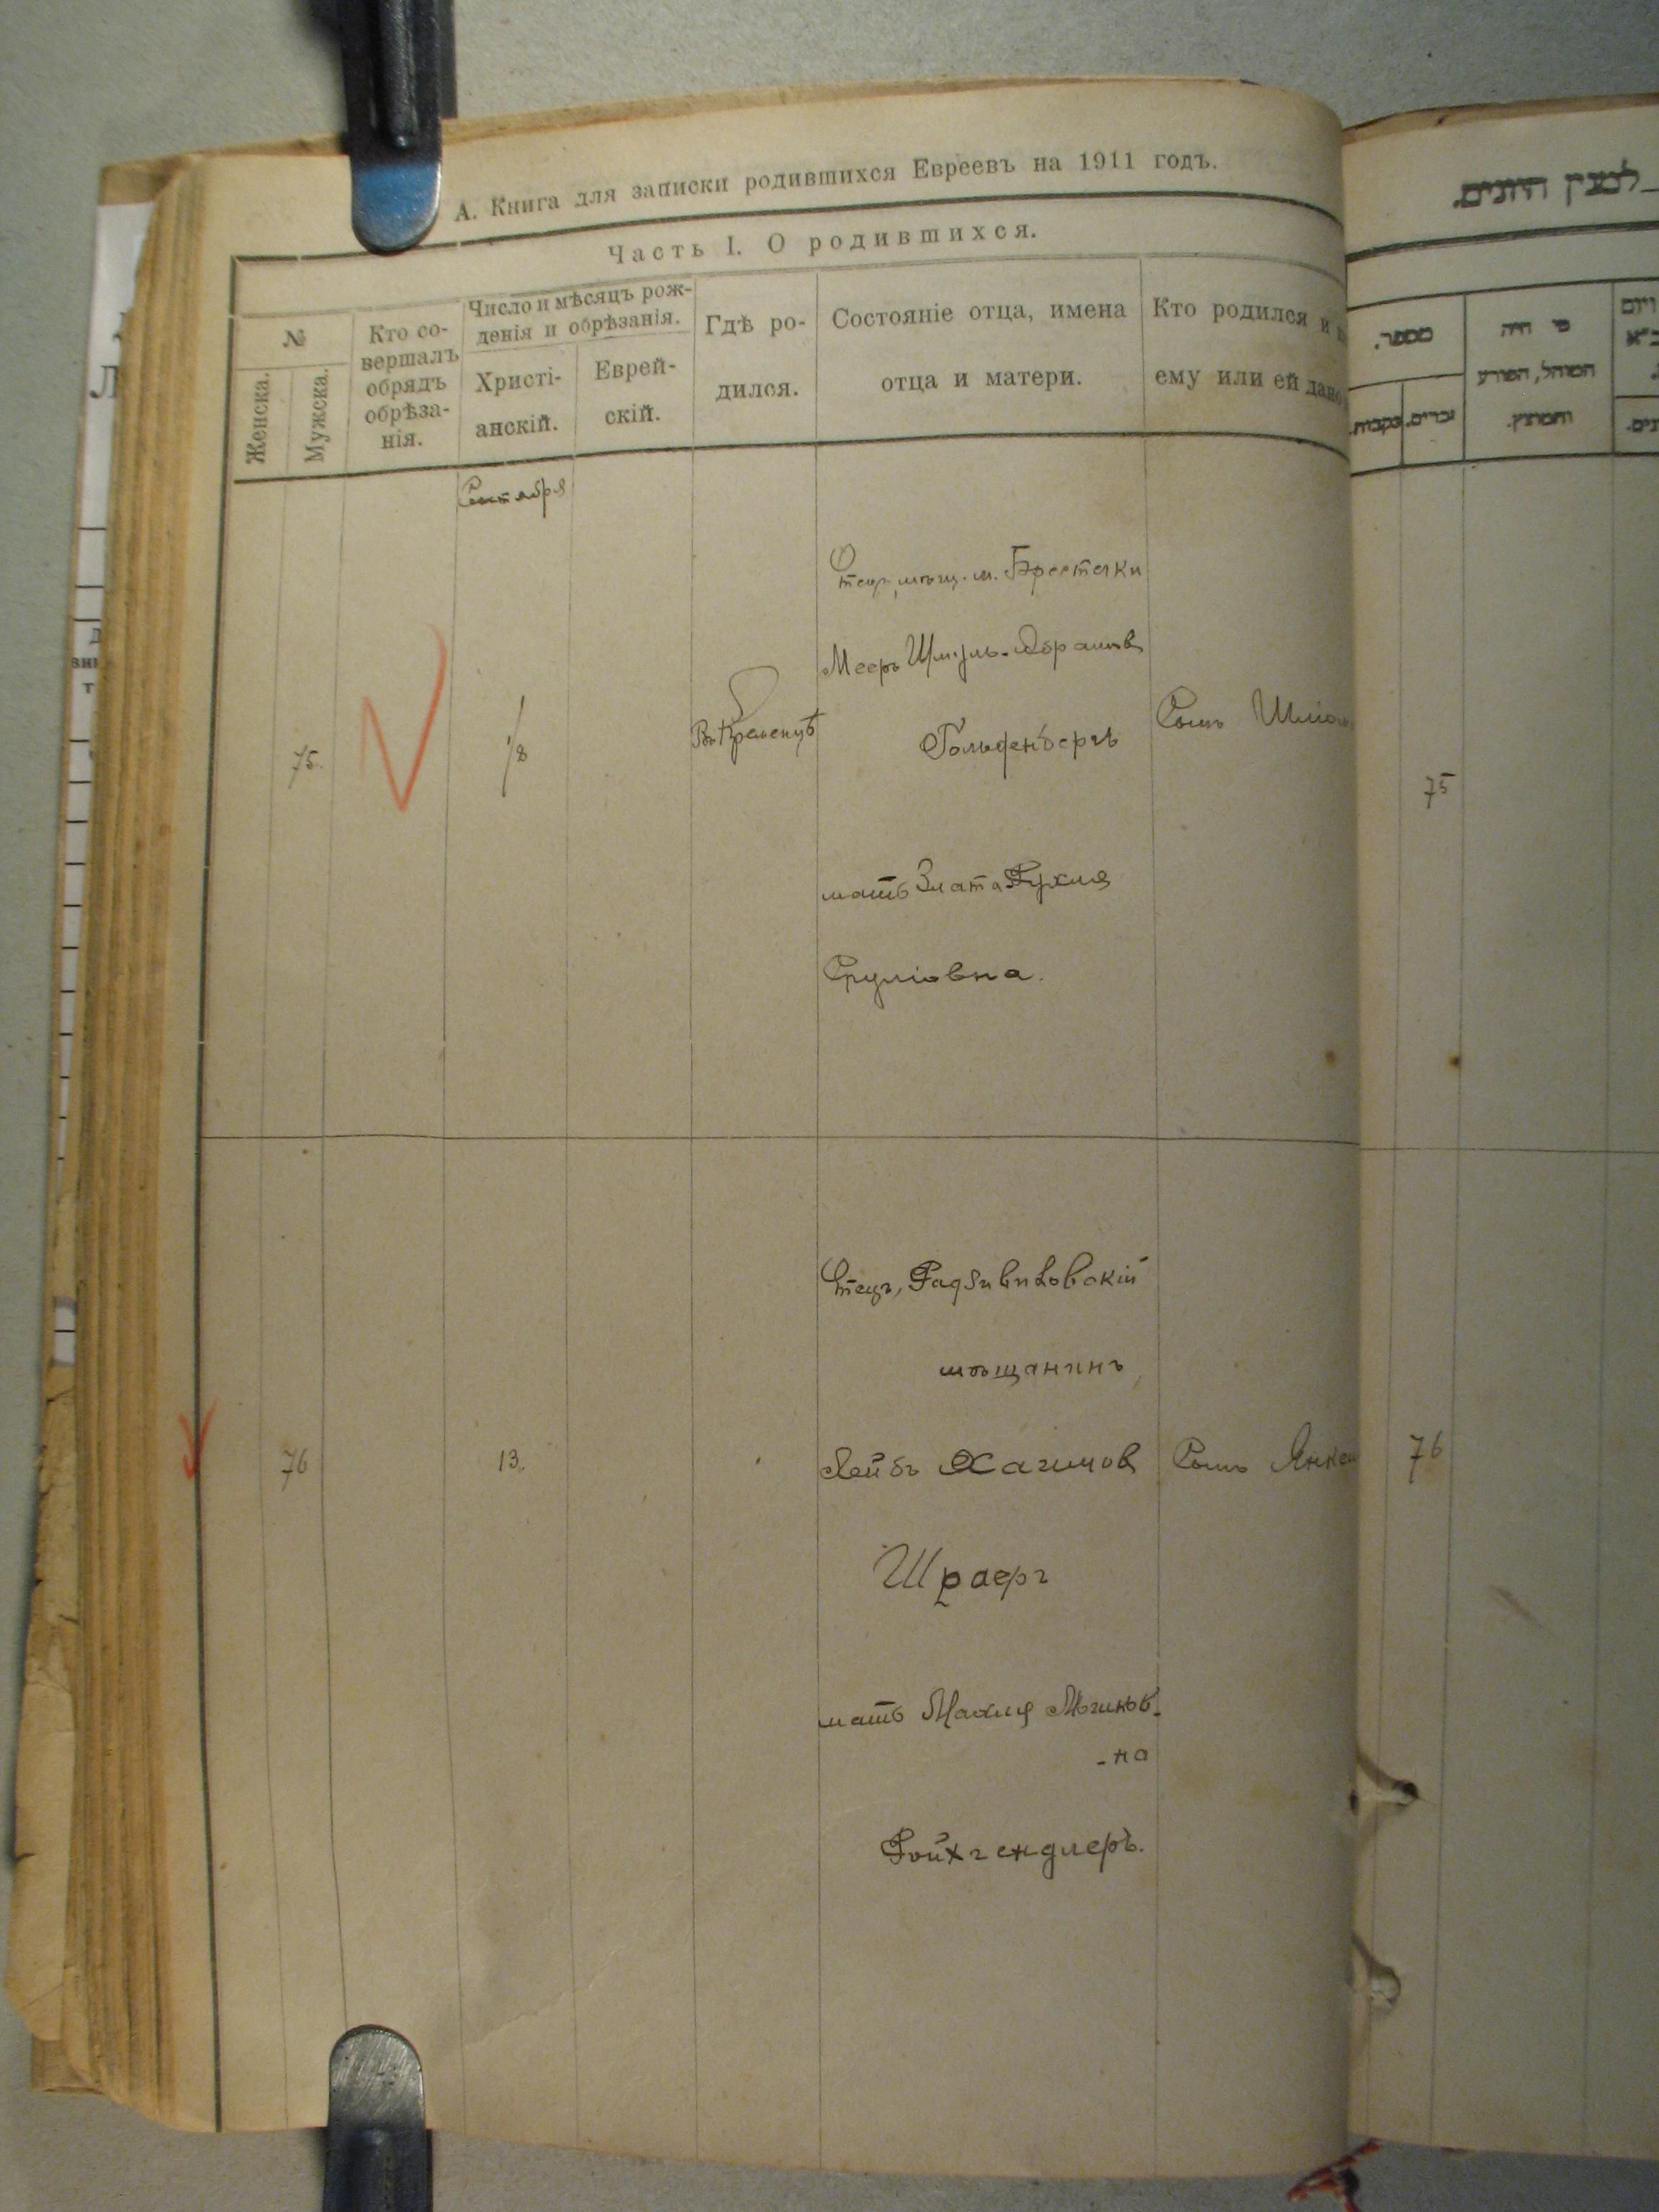 А. Книга для записки родившихся Евреевъ на 1911 годъ.
Часть I. О родившихся.
№
Женска.
Мужска.
Кто со-
вершалъ
обрядъ
обрѣза-
нія.
Число и мѣсяцъ рож-
денія и обрѣзанія.
Христі-
анскій.
Еврей-
скій.
Гдѣ ро-
дился.
Состояніе отца, имена
отца и матери.
Кто родился и
ему или ей дано
Сентября
75.
1/8
Въ Кременцѣ
Отецъ, мѣщ. м. Берестечки
Мееръ Шмуль-Абрамовъ
Гольденбергъ
мать Злата Рухля
Сруліовна.
Сынъ
76
13.
Отецъ, Радзивиловскій
мѣщанинъ,
Лейбъ Хаимовъ
Шраеръ
мать Махля
-на
Ройхгендлеръ.
Сынъ
מספר.
נקבות.
זכרים.
מי היה
המוהל, הפורע
והמוצץ.
75
76